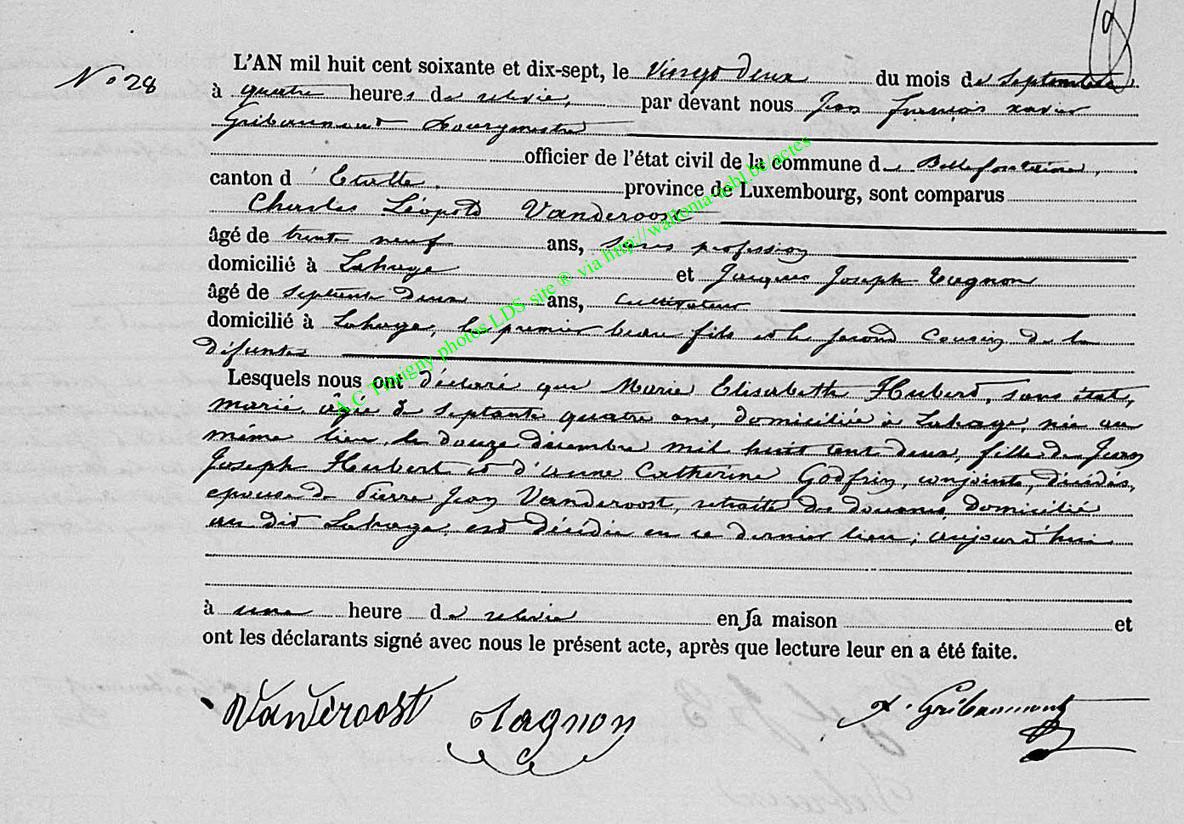 N° 28
L'AN mil huit cent soixante et dix-sept, le vingt deux du mois de septembre
à quatre heures de relevée, par devant nous Jean françois xavier
Gribaumont Bourgmestre
officier de l'état civil de la commune de Bellefontaine,
canton d'Etalle, province de Luxembourg, sont comparus
Charles Léopold Vanderoost
âgé de trente neuf ans, sans profession
domicilié à Lahage et Jacques Joseph Tagnon
âgé de septante deux ans, Cultivateur
domicilié à Lahage, le premier beau fils et le second Cousin de la
défunte
Lesquels nous ont déclaré que Marie Elisabeth Hubert, sans état,
marié, âgée de septante quatre ans, domiciliée à Lahage, née au
même lieu, le douze décembre mil huit cent deux, fille de Jean
Joseph Hubert et d'anne Catherine Godfrin, conjoints, décédés,
epouse de Pierre Jean Vanderoost, retraité des douanes, domicilié
au dit Lahage, est décédée en ce dernier lieu, aujourd'hui
à une heure de relevée en sa maison et
ont les déclarants signé avec nous le présent acte, après que lecture leur en a été faite.
Vanderoost Tagnon x. Gribaumont
A.C. Tintigny photos LDS site ® via http://wallonia-tehl.be/actes